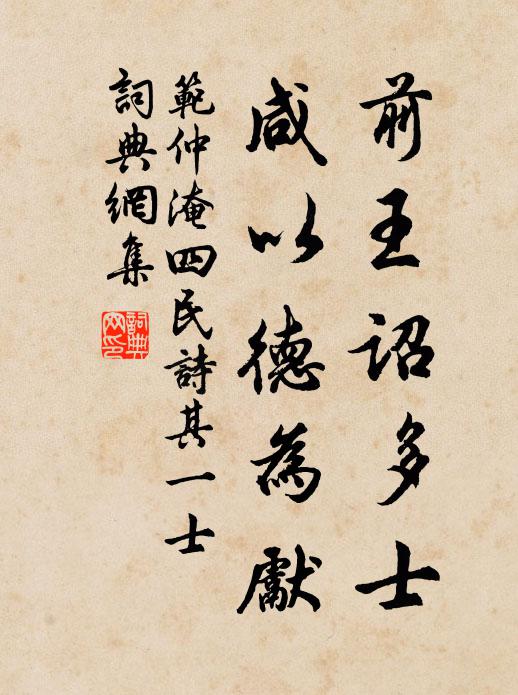 前王詔多士
咸以德為獻
範仲淹四民詩其一士
詞典網集
詞典
网印